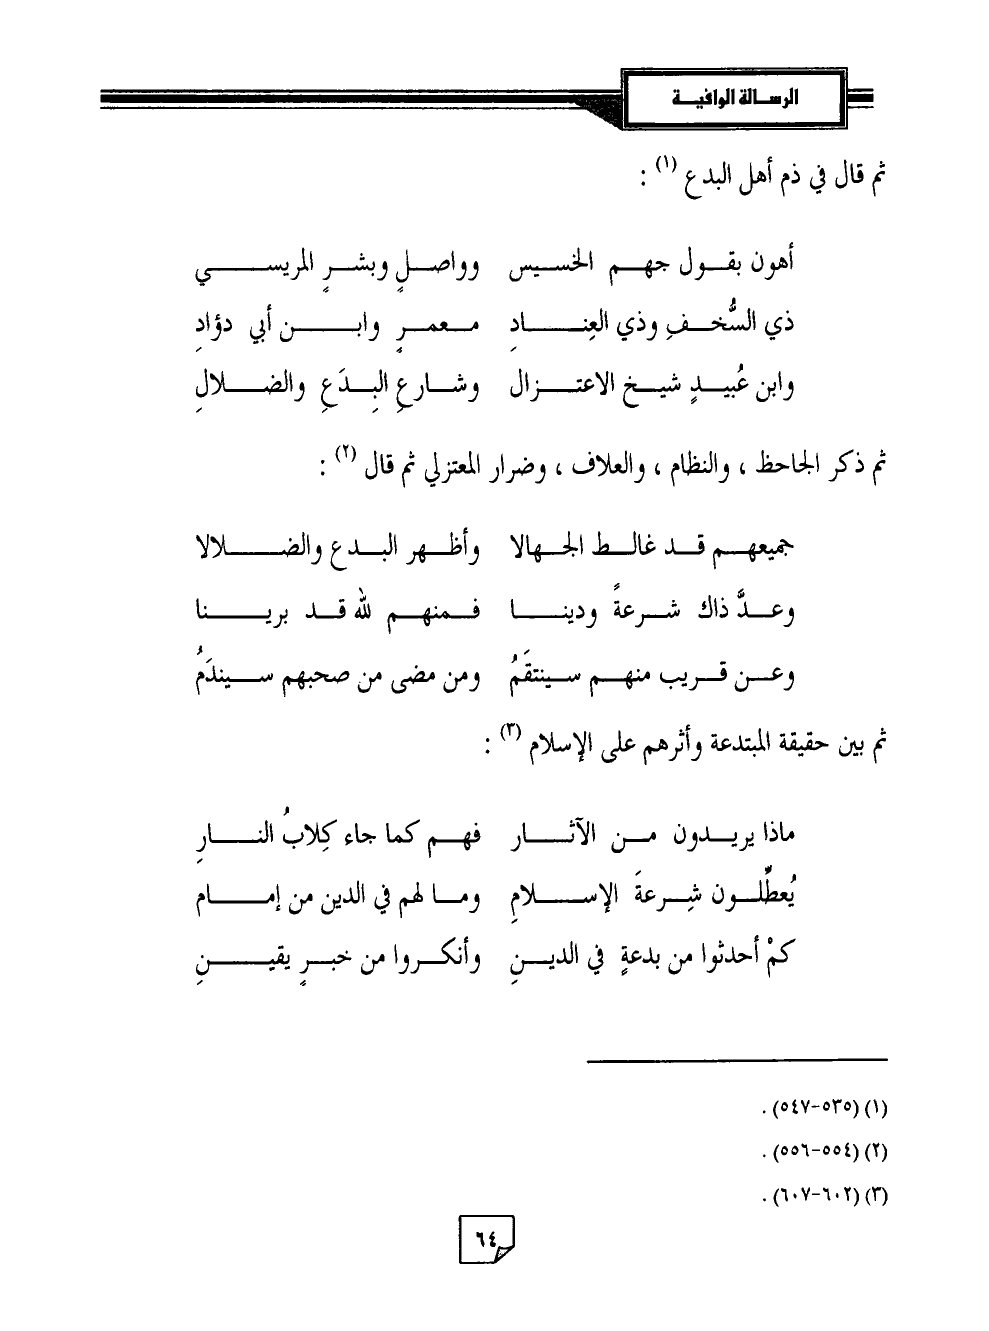 الرسالة الوافية
ثم قال في ذم أهل البدع (١) :
أهون بقول جهم الخسيس وواصلٍ وبشرٍ المريسي
ذي السُّخفِ وذي العِنادِ معمرٍ وابن أبي دؤادِ
وابن عُبيدٍ شيخ الاعتزال وشارعِ البِدَعِ والضلالِ
ثم ذكر الجاحظ ، والنظام ، والعلاف ، وضرار المعتزلي ثم قال (٢) :
جميعهم قد غالط الجهالا وأظهر البدع والضلالا
وعدَّ ذاك شرعةً ودينا فمنهم لله قد برينا
وعن قريب منهم سينتقَمُ ومن مضى من صحبهم سيندَمُ
ثم بين حقيقة المبتدعة وأثرهم على الإسلام (٣) :
ماذا يريدون من الآثار فهم كما جاء كِلابُ النارِ
يُعطِّلون شِرعةَ الإسلامِ وما لهم في الدين من إمام
كمْ أحدثوا من بدعةٍ في الدينِ وأنكروا من خبرٍ يقينِ
(١) (٥٣٥-٥٤٧) .
(٢) (٥٥٤-٥٥٦) .
(٣) (٦٠٢-٦٠٧) .
٦٤